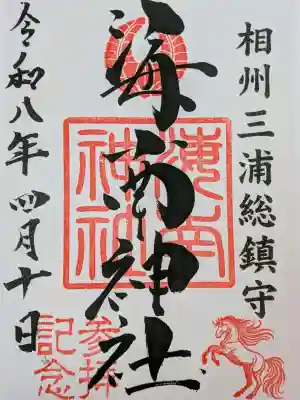 相州三浦総鎮守
海南神社
海南神社
令和八年四月十日
参拝
記念